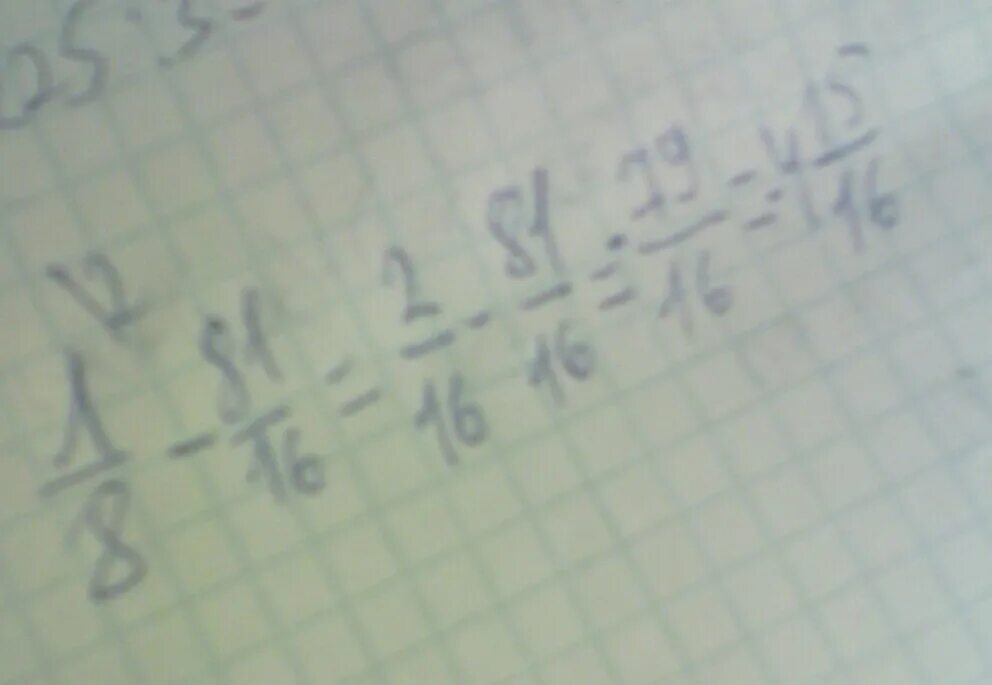 25:3-
1/8 \2 - 81/16 = 2/16 - 81/16 = 79/16 = 4 15/16